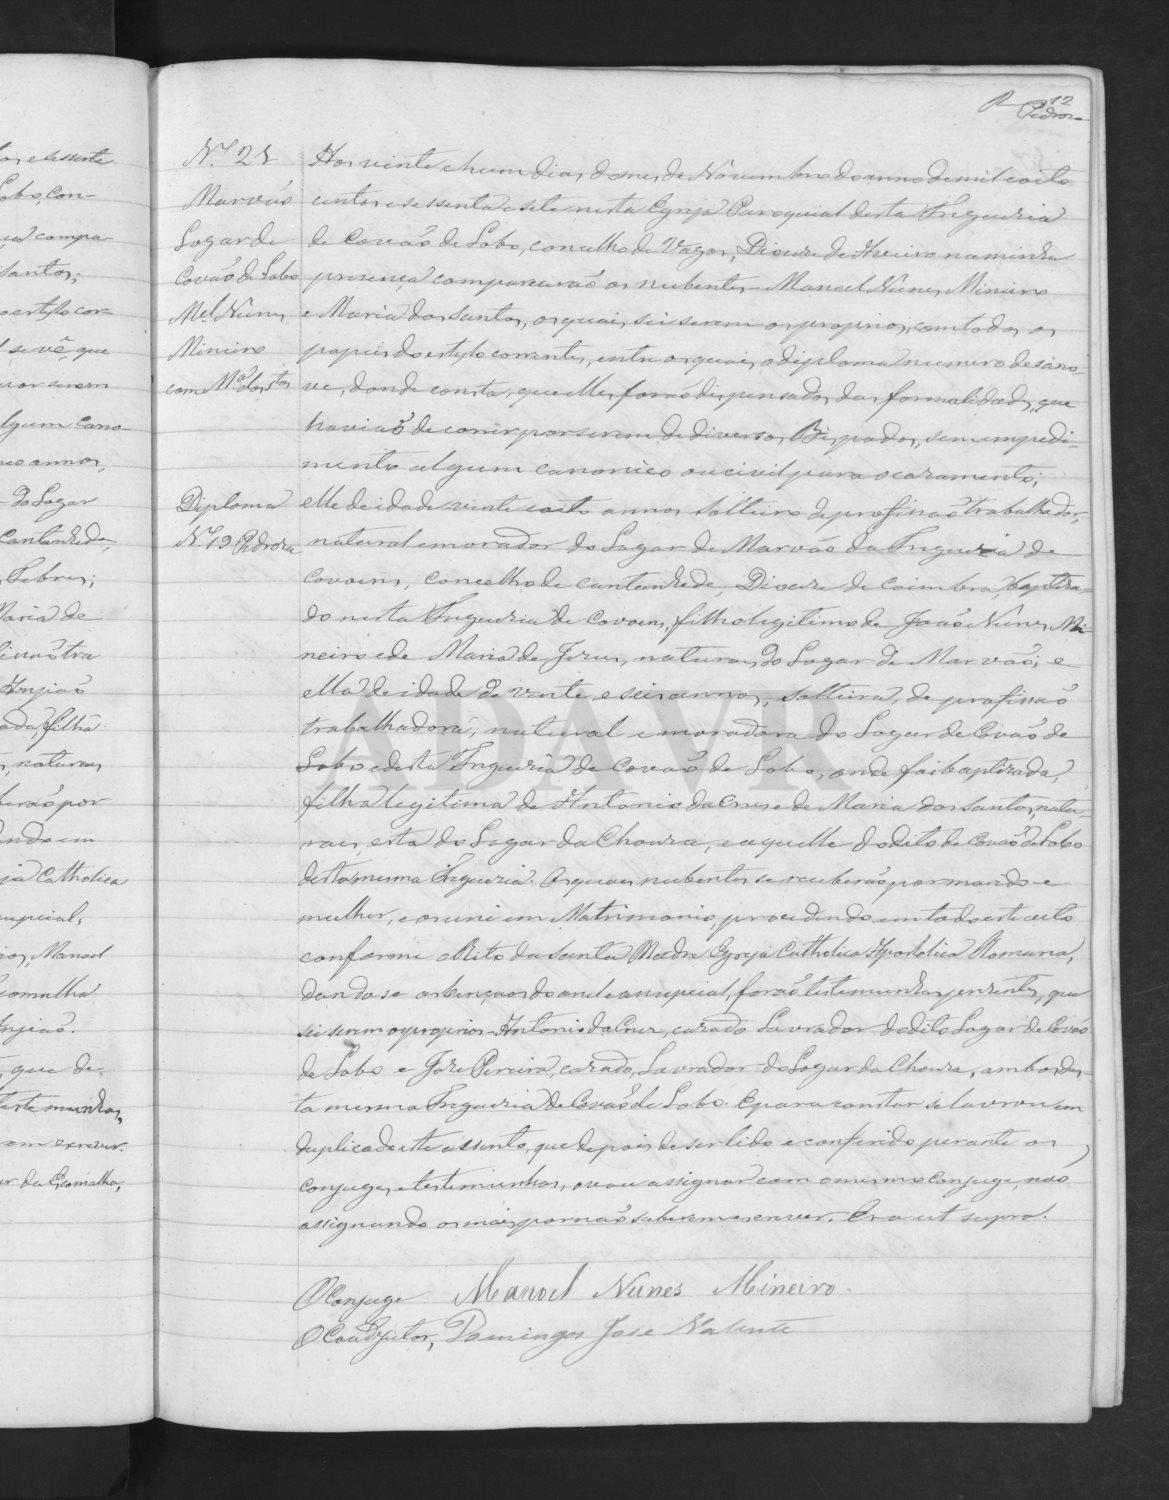 12
Pedroza
N.º 21
Marvão
Logar de
Covão de Lobo
M.el Nunes
Mineiro
com M.ª dos S.tos
Diploma
N.º 19 Pedroza
Aos vinte e hum dias do mes de Novembro do anno de mil e oito
centos e sessenta e sete nesta Egreja Paroquial desta Freguezia
de Covão de Lobo, concelho de Vagos, Diocese de Aveiro na minha
presença comparecerão os nubentes Manoel Nunes Mineiro
e Maria dos Santos, os quais sei serem os proprios, com todos os
papeis do estylo correntes, entre os quais o diploma numero desano-
ve, donde consta, que elles forão dispensados das formalidades, que
havião de correr por serem de diversos Bispados, sem impedi-
mento algum canonico ou civil para o casamento;
elle de idade vinte e oito annos solteiro de profissão trabalhador,
natural e morador do Logar de Marvão da Freguezia de
Covoens, concelho de cantanhede, Diocese de Coimbra, baptiza-
do nesta Freguezia de Covoens, filho legitimo de João Nunes Mi-
neiro e de Maria de Jesus, naturaes do Logar de Marvão; e
ella de idade de vinte e seis annos, solteira, de profissão
trabalhadora, natural e moradora do Logar de Covão de
Lobo e desta Freguezia de Covão de Lobo, onde foi baptizada,
filha legitima de Antonio da Cruz e de Maria dos Santos, natu-
raes, esta do Logar da Choura, e aquelle do dito de Covão de Lobo
desta mesma Freguezia. Os quaes nubentes se receberão por marido e
mulher, e os uni em Matrimonio, procedendo em todo este acto
conforme o Rito da Santa Madre Egreja Catholica Apostolica Romana,
dando-se as bençaos do anel e a nupcial, forão testemunhas prezentes, que
sei serem os proprios Antonio da Cruz, cazado Lavrador do dito Logar de Covão
de Lobo e Joze Pereira, cazado, Lavrador do Logar da Choura, ambos des-
ta mesma Freguezia de Covão de Lobo. E para constar se lavrou em
duplicado este assento, que depois de ser lido e conferido perante os
conjuges e testemunhas, o vou assignar com o mesmo Conjuge, não
assignando os mais por não saberem escrever. Era ut supra.
O Conjuge Manoel Nunes Mineiro.
O Coadjutor, Domingos Jose Valente
ADAVR